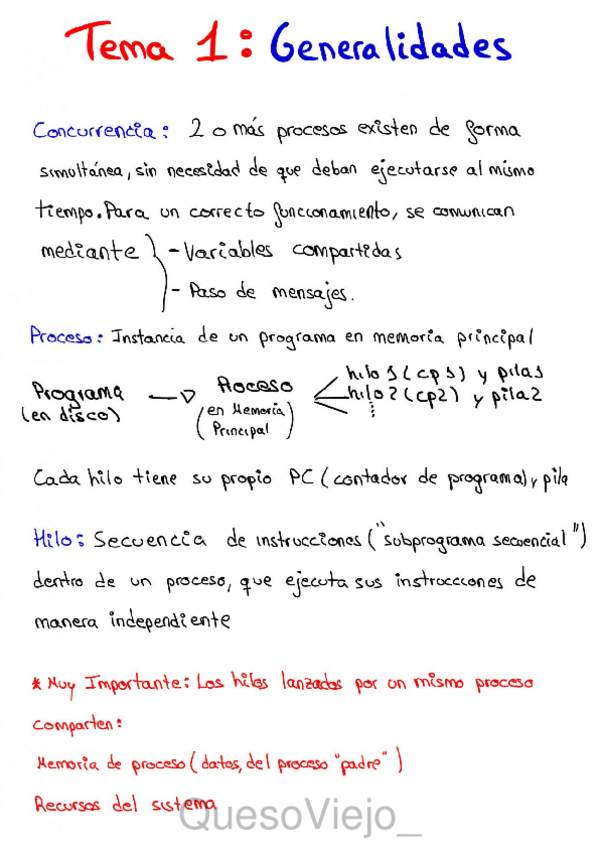 Tema 1: Generalidades
Concurrencia: 2 o más procesos existen de forma
simultánea, sin necesidad de que deban ejecutarse al mismo
tiempo. Para un correcto funcionamiento, se comunican
mediante - Variables compartidas
- Paso de mensajes.
Proceso: Instancia de un programa en memoria principal
Programa (en disco) → Proceso (en Memoria Principal)
hilo1 (cp1) y pila1
hilo2 (cp2) y pila2
Cada hilo tiene su propio PC (contador de programa) y pila
Hilo: Secuencia de instrucciones ("subprograma secuencial")
dentro de un proceso, que ejecuta sus instrucciones de
manera independiente
* Muy Importante: Los hilos lanzados por un mismo proceso
comparten:
Memoria de proceso (datos, del proceso "padre")
Recursos del sistema
QuesoViejo_